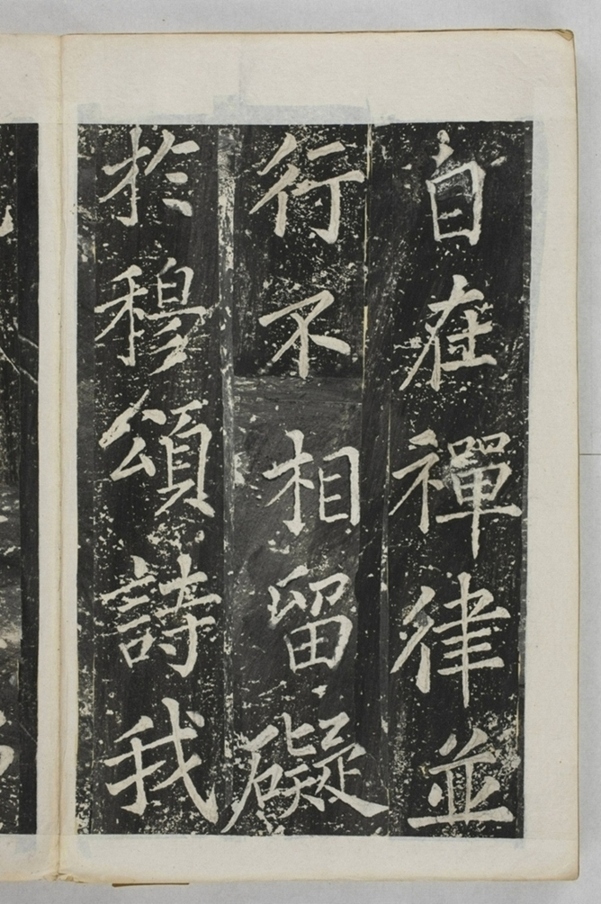 自在禪律並
行不相留礙
於穆頌詩我